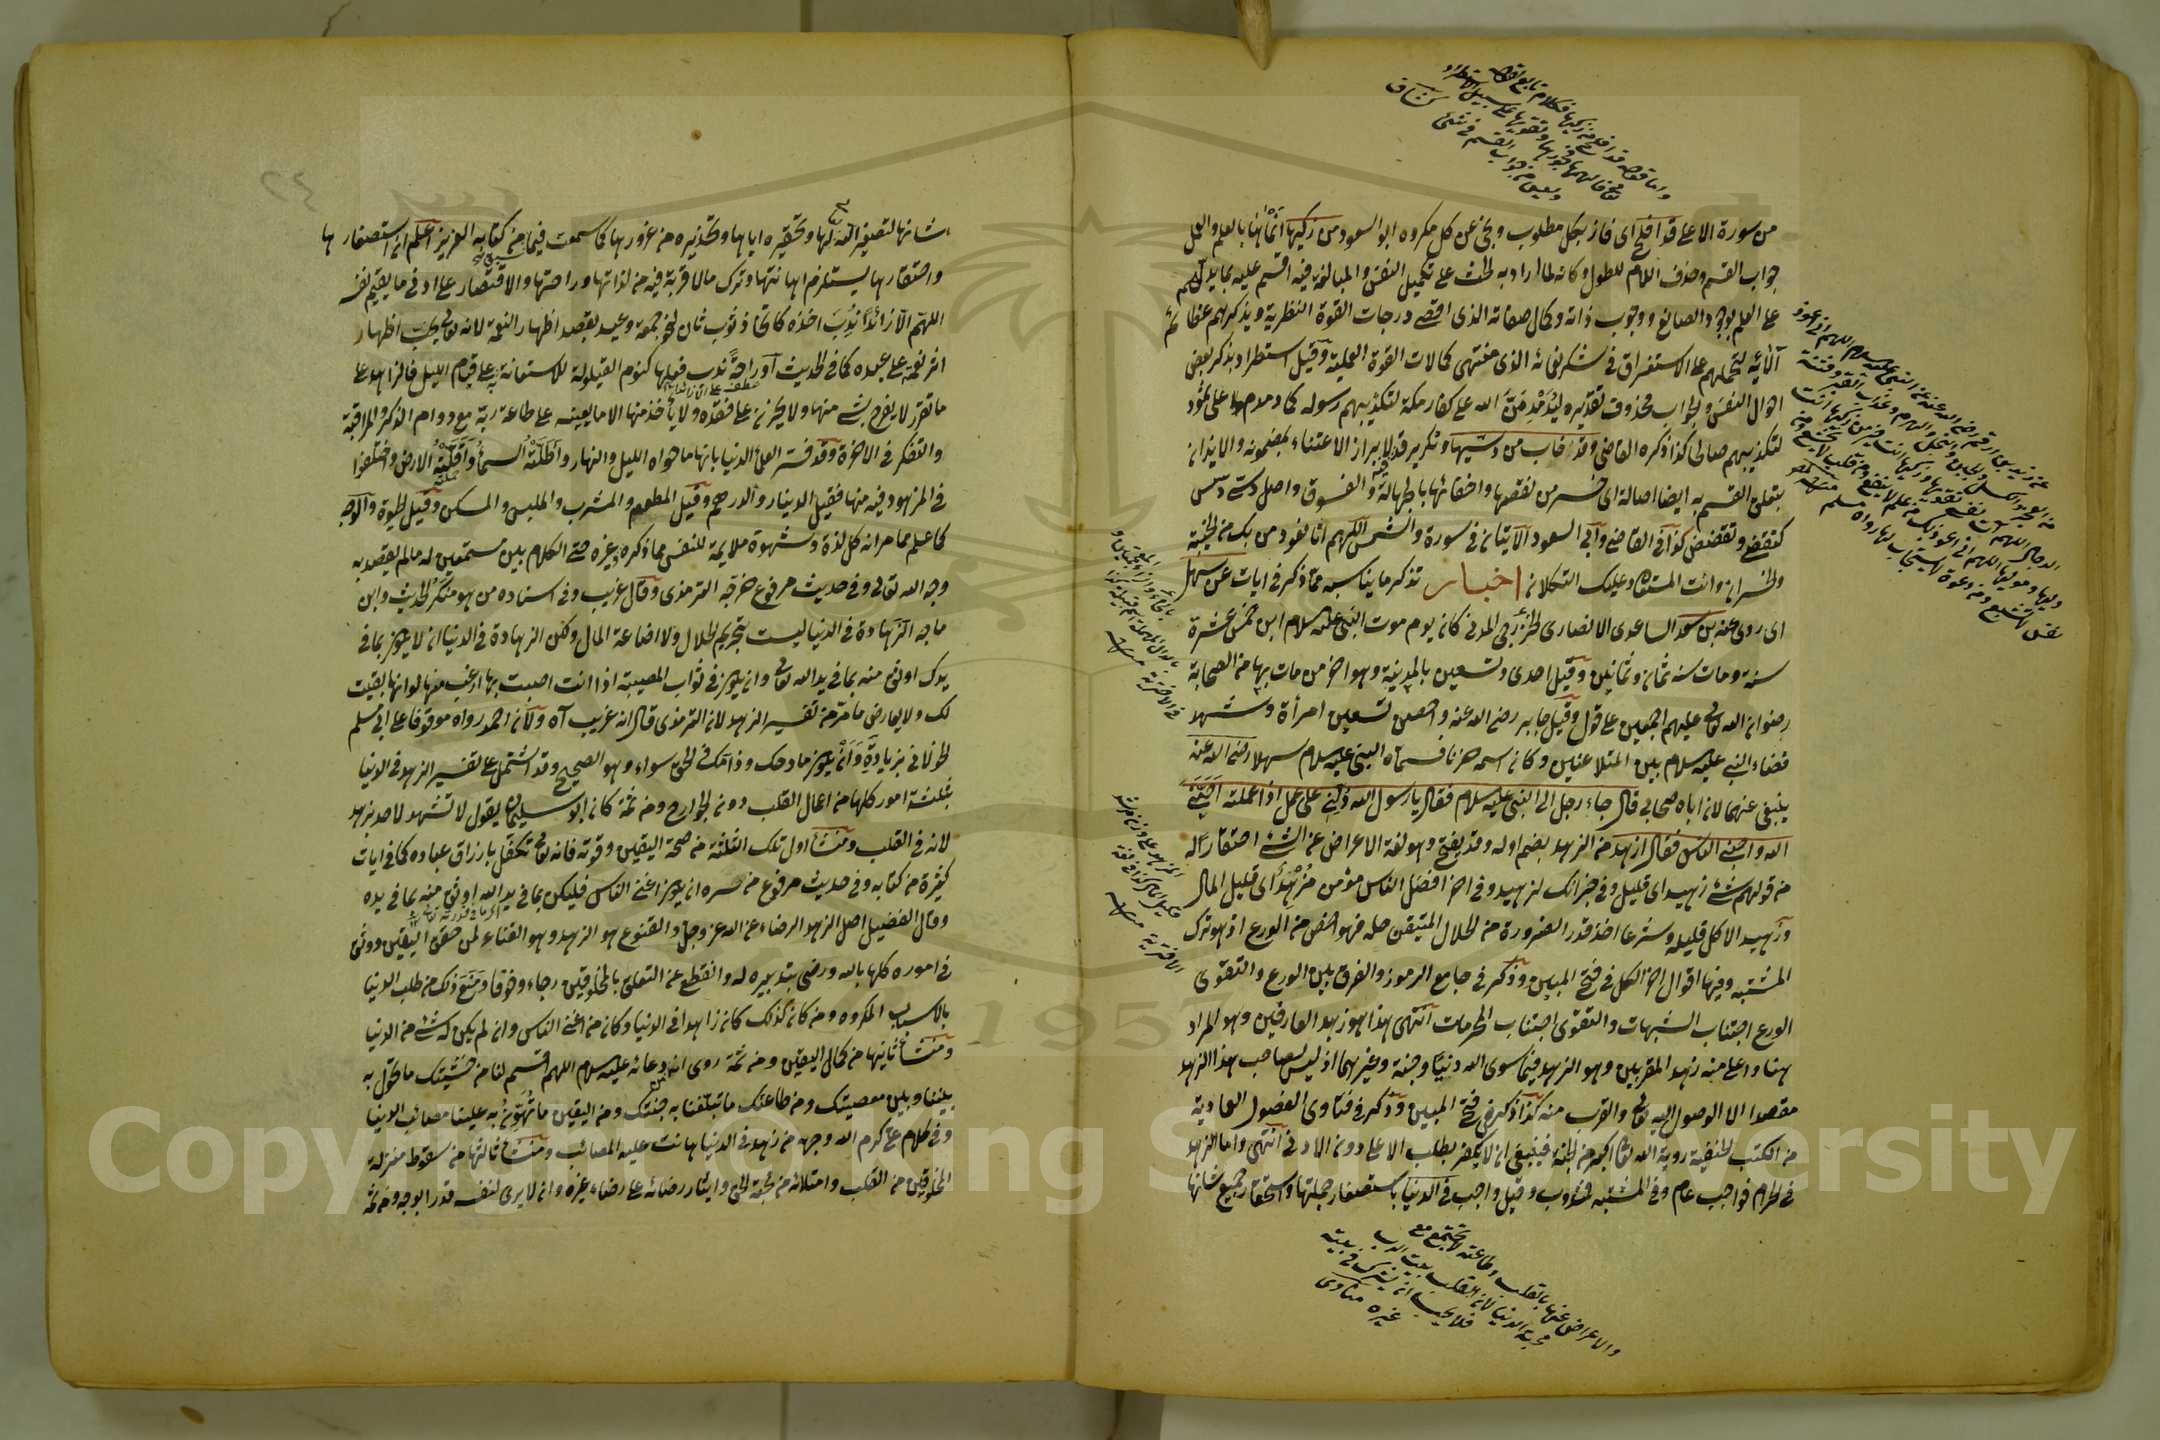 من سورة الاعلى قد افلح اى فاز بكل مطلوب ونجى عن كل مكروه ابو السعود من زكيها انماها بالعلم والعمل
جواب القسم وحذف اللام للطول وكانه لما اراد به الحث على تكميل النفس والمبالغة فيه اقسم عليه بما يدلهم
على العلم بوجود الصانع ووجوب ذاته وكمال صفاته الذى اقصى درجات القوة النظرية ويذكرهم عظائم
آلائه ليحملهم على الاستغراق في شكر نعمائه الذى منتهى كمالات القوة العملية وقيل استطراد بذكر بعض
احوال النفس والجواب محذوف تقديره ليدمدمن الله على كفار مكة لتكذيبهم رسوله كما دمدم على ثمود
لتكذيبهم صالحا كذا ذكره القاضى وقد خاب من دسيها وتكرير قد لابراز الاعتناء بمضمونه والايذان
بتعلق القسم به ايضا اصالة اى خسر من نقصها واخفائها بالجهالة والفسوق واصل دسى دسس
كتقضى وتقضض كذا في القاضى وابى السعود الآيتان في سورة والشمس اللهم انا نعوذ من بك من الخيبة
والخسران وانت المستعان وعليك التكلان اخبار تذكر ما يناسبه مما ذكر في ايات عن سهل
اى روى عنه بن سعد الساعدى الانصارى الخزرجى المدنى كان يوم موت النبى عليه السلام ابن خمس عشرة
سنة ومات سنة ثمان وثمانين وقيل احدى وتسعين بالمدينة وهو اخر من مات بها من الصحابة
رضوان الله تعالى عليهم اجمعين على قول وقيل جابر رضى الله عنه واحصن تسعين امرأة وشهد
قضاء النبى عليه سلام بين المتلاعنين وكان اسمه حزنا فسماه النبى عليه سلام سهلا رضى الله عنه
ينبغى عنهما لان اباه صحابى قال جاء رجل الى النبى عليه سلام فقال يا رسول الله دلنى على عمل اذا عملته احبنى
الله واحبنى الناس فقال ازهد من الزهد بضم اوله وقد يفتح وهو لغة الاعراض عن الشئ احتقارا له
من قولهم شئ زهيد اى قليل وفي خبر انك لزهيد وفي اخر افضل الناس مؤمن مزهد اى قليل المال
وزهيد الاكل قليله وشرعا اخذ قدر الضرورة من الحلال المتيقن حله فهو اخص من الورع اذ هو ترك
المشتبه وفيها اقوال اخر الكل في فتح المبين وذكر في جامع الرموز والفرق بين الورع والتقوى
الورع اجتناب الشبهات والتقوى اجتناب المحرمات انتهى هذا هو زهد العارفين وهو المراد
هنا واعلى منه زهد المقربين وهو الزهد فيما سوى الله دنيا وجنة وغيرهما اذ ليس لصاحب هذا الزهد
مقصد الا الوصول اليه تعالى والقرب منه كذا ذكر في فتح المبين وذكر في فتاوى الفصول العمادية
من الكتب الحنفية روية الله تعالى اكبر من الجنة فينبغى ان لا يكفر بطلب الاعلى دون الادنى انتهى واما الزهد
في الحرام فواجب عام وفي المشتبه فمندوب وقيل واجب في الدنيا باستصغار جملتها واحتقار جميع شانها
والاعراض عنها بالقلب وطاعته لا تجتمع مع
محبة الدنيا لان القلب بيت الرب
فلا يحب ان يشرك في بيته
غيره مناوى
شانها لتصغير الله لها وتحقيره اياها وتحذيره من غرورها كما سمعت فيما من كتابه العزيز اعلم ان استصغارها
واحتقارها يستلزم اهانتها وترك مالا قربة فيه من لذاتها وراحتها والاقتصار على ادنى ما يقيم نفسه
اللهم الا زائدا ندب اخذه كاتخاذ ثوب ثان لنحو جمعة وعيد بقصد اظهار النعمة لانه تعالى يحب اظهار
اثر نعمة على عبده كما في الحديث او راحة ندب فعلها كنوم القيلولة للاستعانة به على قيام الليل فالزاهد على
ما تقرر لا يفرح بشئ منها ولا يحزن على فقده ولا يأخذ منها الا ما يعينه على طاعة ربه مع دوام الذكر والمراقبة
والتفكر في الاخرة وقد فسر العلماء الدنيا بانها ما حواه الليل والنهار واظلته السماء واقلته الارض واختلفوا
في المزهود فيه منها فقيل الدينار والدرهم وقيل المطعم والمشرب والملبس والمسكن وقيل الحيوة والاوجه
كما علم مما مر انه كل لذة وشهوة ملايمة للنفس مما ذكره وغيره حتى الكلام بين مستمعين له مالم يقصد به
وجه الله تعالى وفي حديث مرفوع خرجه الترمذى وقال غريب وفي اسناده من هو منكر الحديث وابن
ماجه الزهادة في الدنيا ليست بتحريم الحلال ولا اضاعة المال ولكن الزهادة في الدنيا ان لا يكون بما في
يدك اوثق منه بما في يد الله تعالى وان يكون في ثواب المصيبة اذا انت اصبت بها ارغب منها لو انها بقيت
لك ولا يعارض ما مر من تفسير الزهد لان الترمذى قال انه غريب آه ولان احمد رواه موقوفا على ابى مسلم
الخولانى بزيادة وان يكون مادحك وذامك في الحق سواء وهو الصحيح وقد اشتمل على تفسير الزهد في الدنيا
بثلثة امور كلها من اعمال القلب دون الجوارح ومن ثمة كان ابو سليمان يقول لا تشهد لاحد بزهد
لانه في القلب ومنشأ اول تلك الثلثة من صحة اليقين وقوته فانه تعالى تكفل بارزاق عباده كما في ايات
كثيرة من كتابه وفي حديث مرفوع من سره ان يكون اغنى الناس فليكن بما في يد الله اوثق منه بما في يده
وقال الفضيل اصل الزهد الرضاء عن الله عز وجل والقنوع هو الزهد وهو الغناء لمن حقق اليقين ووثق
في اموره كلها بالله ورضى بتدبيره له وانقطع عن التعلق بالمخلوقين رجاء وخوفا ومنع ذلك من طلب الدنيا
بالاسباب المكروه ومن كان كذلك كان زاهدا في الدنيا وكان من اغنى الناس وان لم يكن له شئ من الدنيا
ومنشأ ثانيها من كمال اليقين ومن ثمة روى ان دعائه عليه سلام اللهم اقسم لنا من خشيتك ما تحول به
بيننا وبين معصيتك ومن طاعتك ما تبلغنا به جنتك ومن اليقين ما تهون به علينا مصائب الدنيا
وفي كلام على كرم الله وجهه من زهد في الدنيا هانت عليه المصائب ومنشأ ثالثها من سقوط منزلة
المخلوقين من القلب وامتلائه من محبة الحق وايثار رضائه على رضاء غيره وان لا يرى لنفسه قدرا بوجه ومن ثمة
1957
Copyright © King Saud University